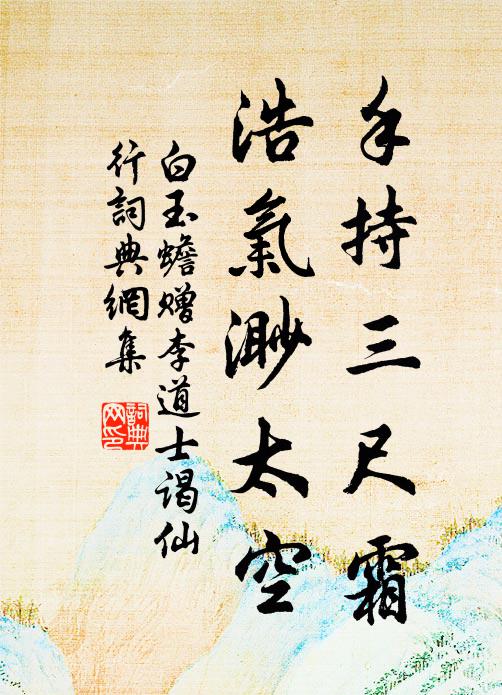 手持三尺霜
浩氣渺太空
白玉蟾贈李道士謁仙
行詞典網集
詞典
网印